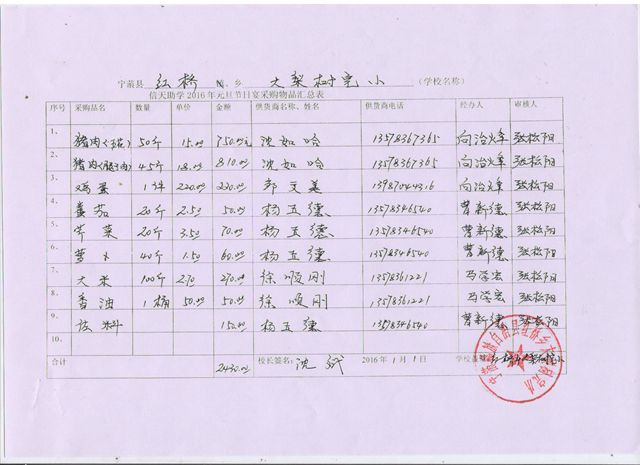 宁蒗县 红桥 镇、乡 大梨树完小 (学校名称)
信天助学2016年元旦节日宴采购物品汇总表
序号 采购品名 数量 单价 金额 供货商名称、姓名 供货商电话 经办人 审核人
1、 猪肉 50斤 15.00 750.00元 沈如哈 13578367365 向治火 张松阳
2、 猪肉 45斤 18.00 810.00 沈如哈 13578367365 向治火 张松阳
3、 鸡蛋 1件 220.00 220.00 文美 13987044316 向治火 张松阳
4、 蕃茄 20斤 2.50 50.00 杨五德 13578346540 曹新德 张松阳
5、 芹菜 20斤 3.50 70.00 杨五德 13578346540 曹新德 张松阳
6、 萝卜 40斤 1.50 60.00 杨五德 13578346540 曹新德 张松阳
7、 大米 100斤 2.70 270.00 徐顺刚 13578361221 马学宏 张松阳
8、 香油 1桶 50.00 50.00 徐顺刚 13578361221 马学宏 张松阳
9、 佐料 150.00 杨五德 13578346540 曹新德 张松阳
10、
合计 2430.00 校长签名: 沈 2016年1月1日 学校盖章